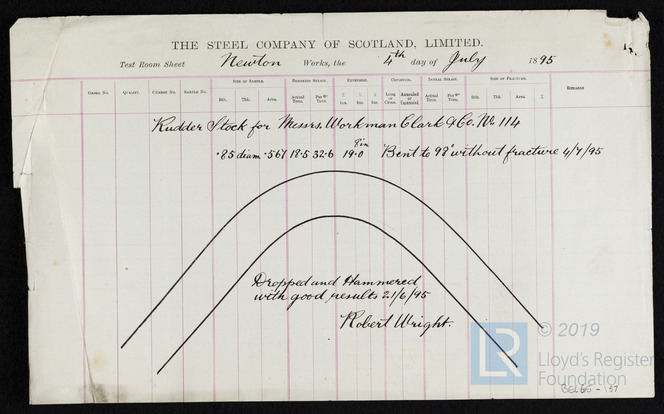 THE STEEL COMPANY OF SCOTLAND, LIMITED.
Test Room Sheet Newton Works, the 4th day of July 1895
SIZE OF SAMPLE. BREAKING STRAIN. EXTENSION. CONDITION. INITIAL STRAIN. SIZE OF FRACTURE.
ORDER No. QUALITY. CHARGE No. SAMPLE No. Bth. Thk. Area. Actual Tons. Per □" Tons. Ins. Ins. Ins. Long or Cross. Annealed or Tempered. Actual Tons. Per □" Tons. Bth. Thk. Area. REMARKS
Rudder Stock for Messrs. Workman Clark & Co. No 114
8 in
.85 diam .567 18.5 32.6 19.0 Bent to 98° without fracture 4/7/95
Dropped and Hammered
with good results 21/6/95
Robert Wright.
© 2019
LR
Lloyd's Register
Foundation